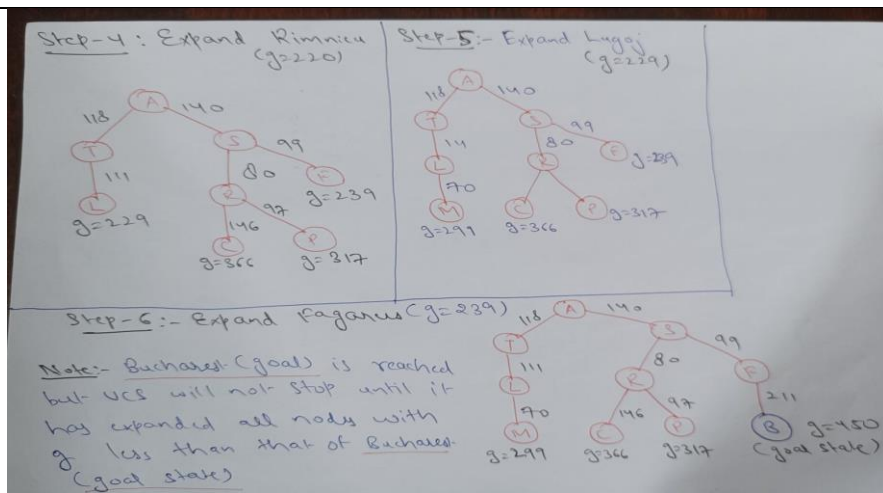 Step-4 : Expand Rimnicu
(g=220)
A
118
140
T
S
111
80
99
L
R
F
g=229
g=239
146
97
C
P
g=366
g=317
Step-5:- Expand Lugoj
(g=229)
A
118
140
T
S
111
80
99
L
R
F
g=239
70
M
C
P
g=317
g=299
g=366
Step-6:- Expand Fagarus (g=239)
Note:- Bucharest (goal) is reached
but UCS will not stop until it
has expanded all nodes with
g less than that of Bucharest
(goal state)
A
118
140
T
S
111
80
99
L
R
F
70
146
97
211
M
C
P
B
g=450
g=299
g=366
g=317
(goal state)